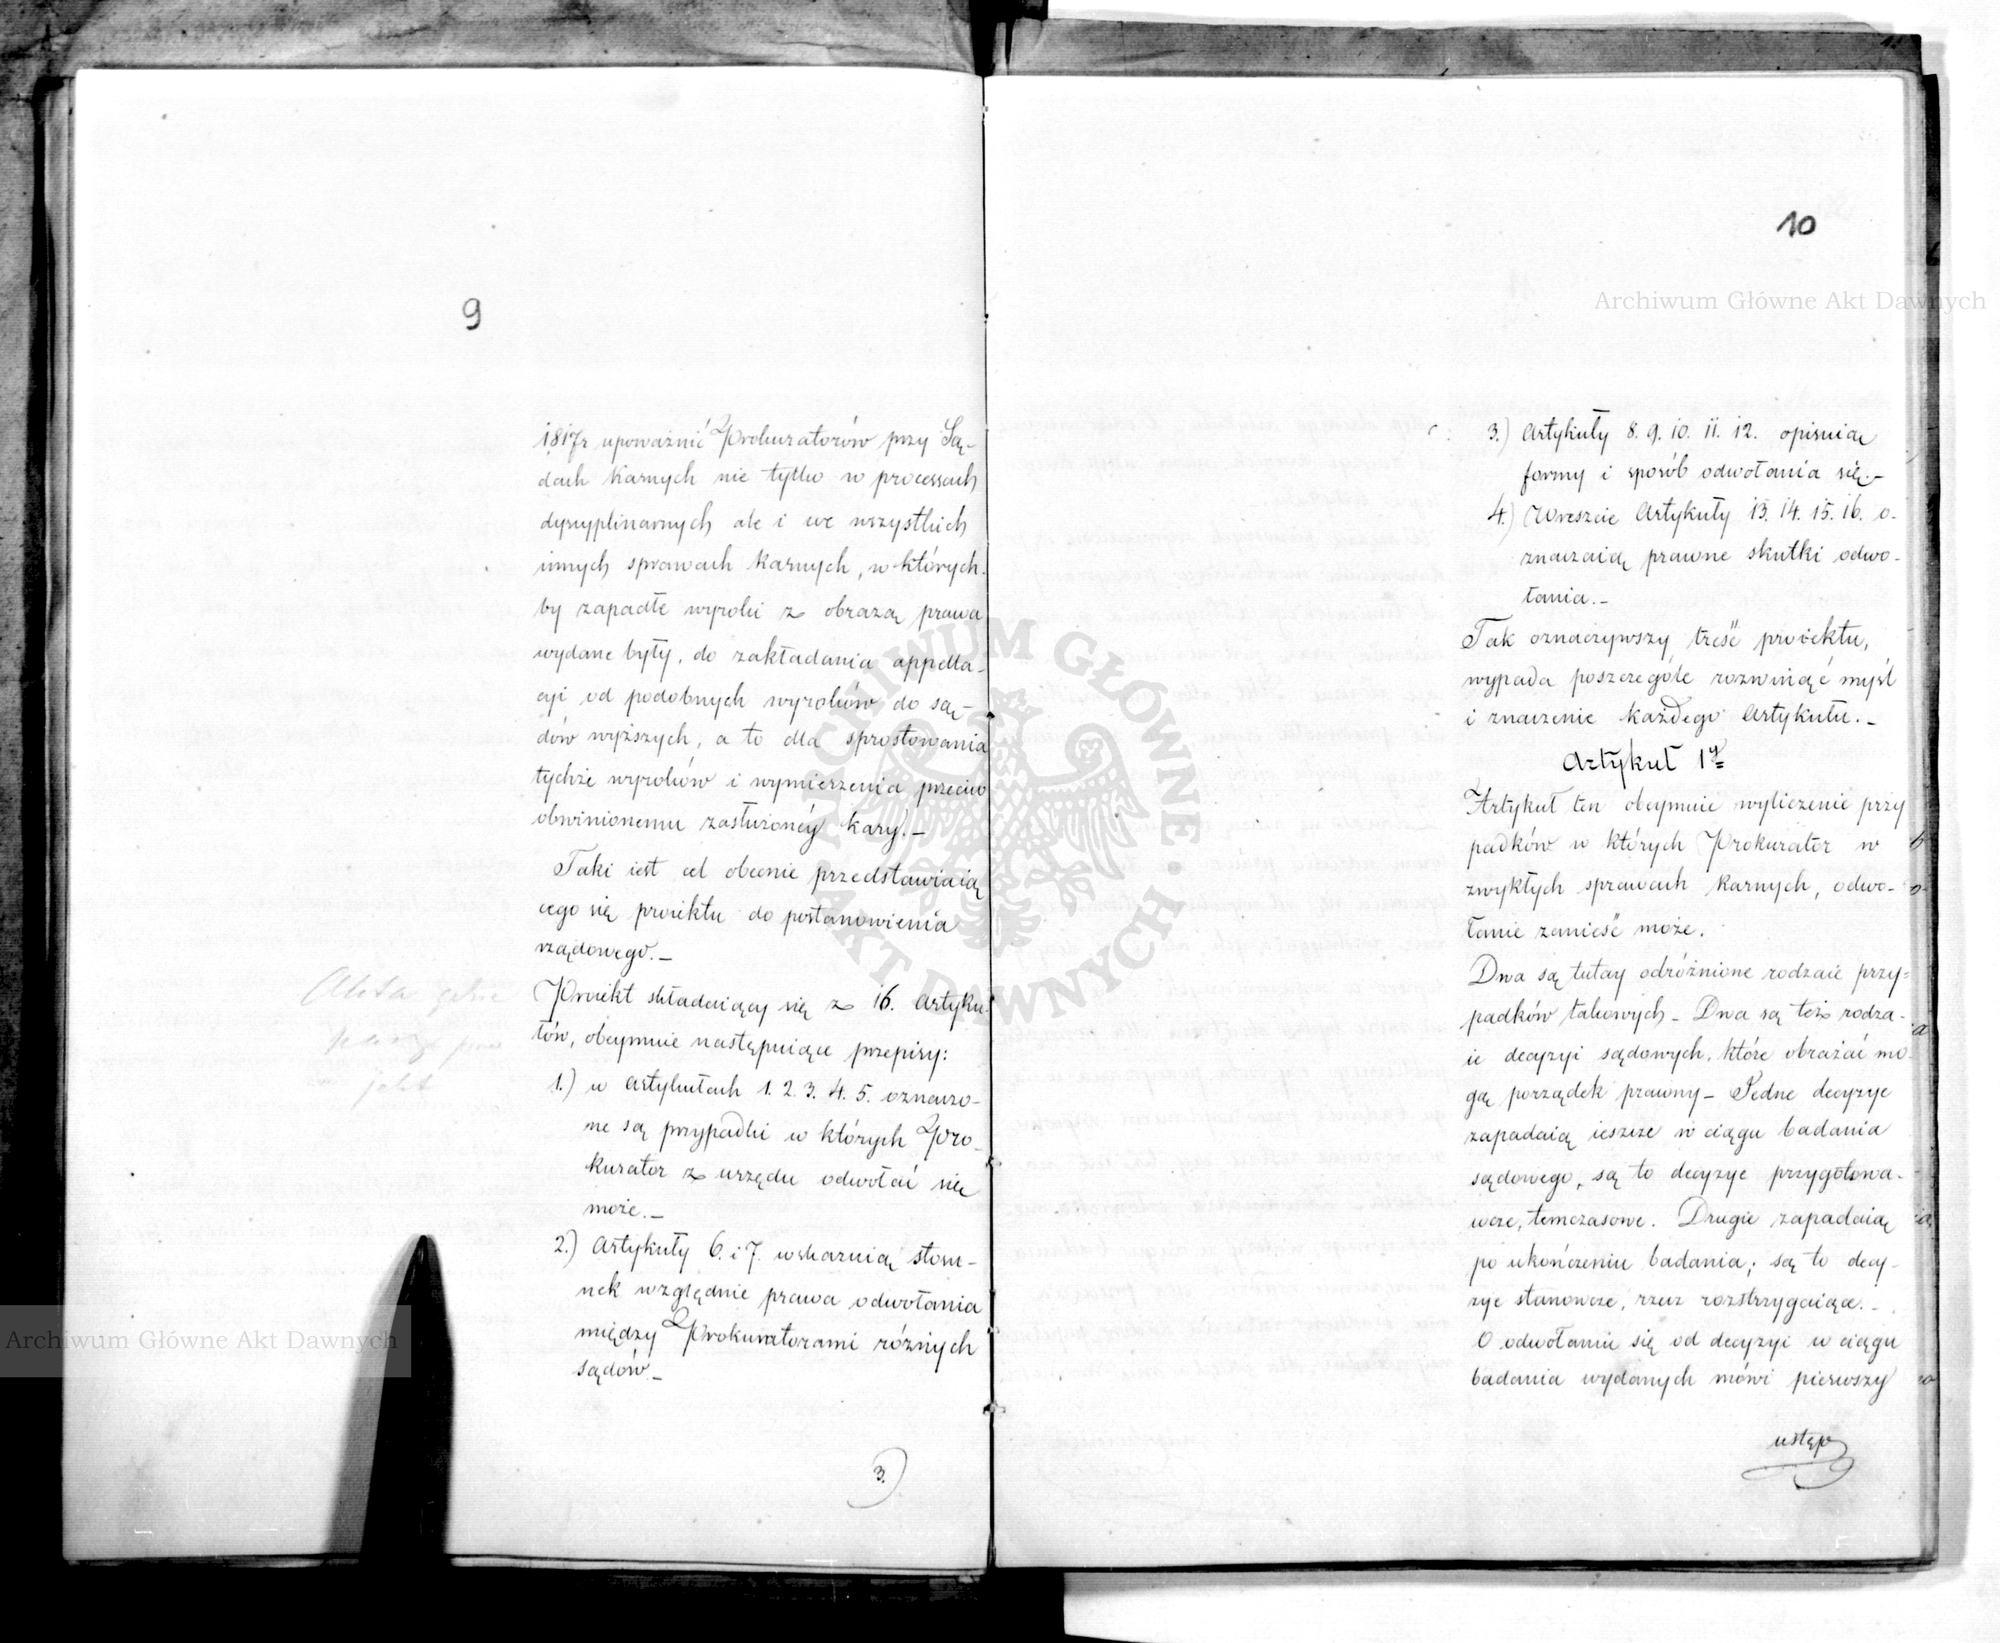 9
1817r upoważnić Prokuratorów przy Są-
dach Karnych nie tylko w processach
dyscyplinarnych ale i we wszystkich
innych sprawach Karnych, w których-
by zapadłe wyroki z obrazą prawa
wydane były, do zakładania appella-
cyi od podobnych wyroków do są-
dów wyższych, a to dla sprostowania
tychże wyroków i wymierzenia przeciw
obwinionemu zasłużonéy kary.-
Taki iest cel obecnie przedstawiaią
cego się proiektu do postanowienia
rządowego.-
Proiekt składaiący się z 16. Artyku-
łów, obeymuie następuiące przepisy:
1.) w Artykułach 1. 2. 3. 4. 5. oznaczo-
ne są przypadki w których Pro-
kurator z urzędu odwołać się
może.-
2.) Artykuły 6. i 7. wskazuią stosu-
nek względnie prawa odwołania
między Prokuratorami różnych
sądów.-
3.)
10
3.) Artykuły 8. 9. 10. 11. 12. opisuią
formy i sposób odwołania się.-
4.) Wreszcie Artykuły 13. 14. 15. 16. o-
znaczaią prawne skutki odwo-
łania.-
Tak oznaczywszy treść proiektu,
wypada poszczególe rozwinąć myśl
i znaczenie każdego Artykułu.-
Artykuł 1y
Artykuł ten obeymuie wyliczenie przy
padków w których Prokurator w
zwykłych sprawach Karnych, odwo-
łanie zanieść może.
Dwa są tutay odróżnione rodzaie przy-
padków takowych - Dwa są też rodza-
ie decyzyi sądowych, które obrażać mo-
gą porządek prawny - Jedne decyzye
zapadaią ieszcze w ciągu badania
sądowego, są to decyzye przygotowa-
wcze, temczasowe. Drugie zapadaią
po ukończeniu badania; są to decy-
zye stanowcze, rzecz rozstrzygaiące.-
O odwołaniu się od decyzyi w ciągu
badania wydanych mówi pierwszy
ustęp
Archiwum Główne Akt Dawnych
Archiwum Główne Akt Dawnych
ARCHIWUM GŁÓWNE AKT DAWNYCH